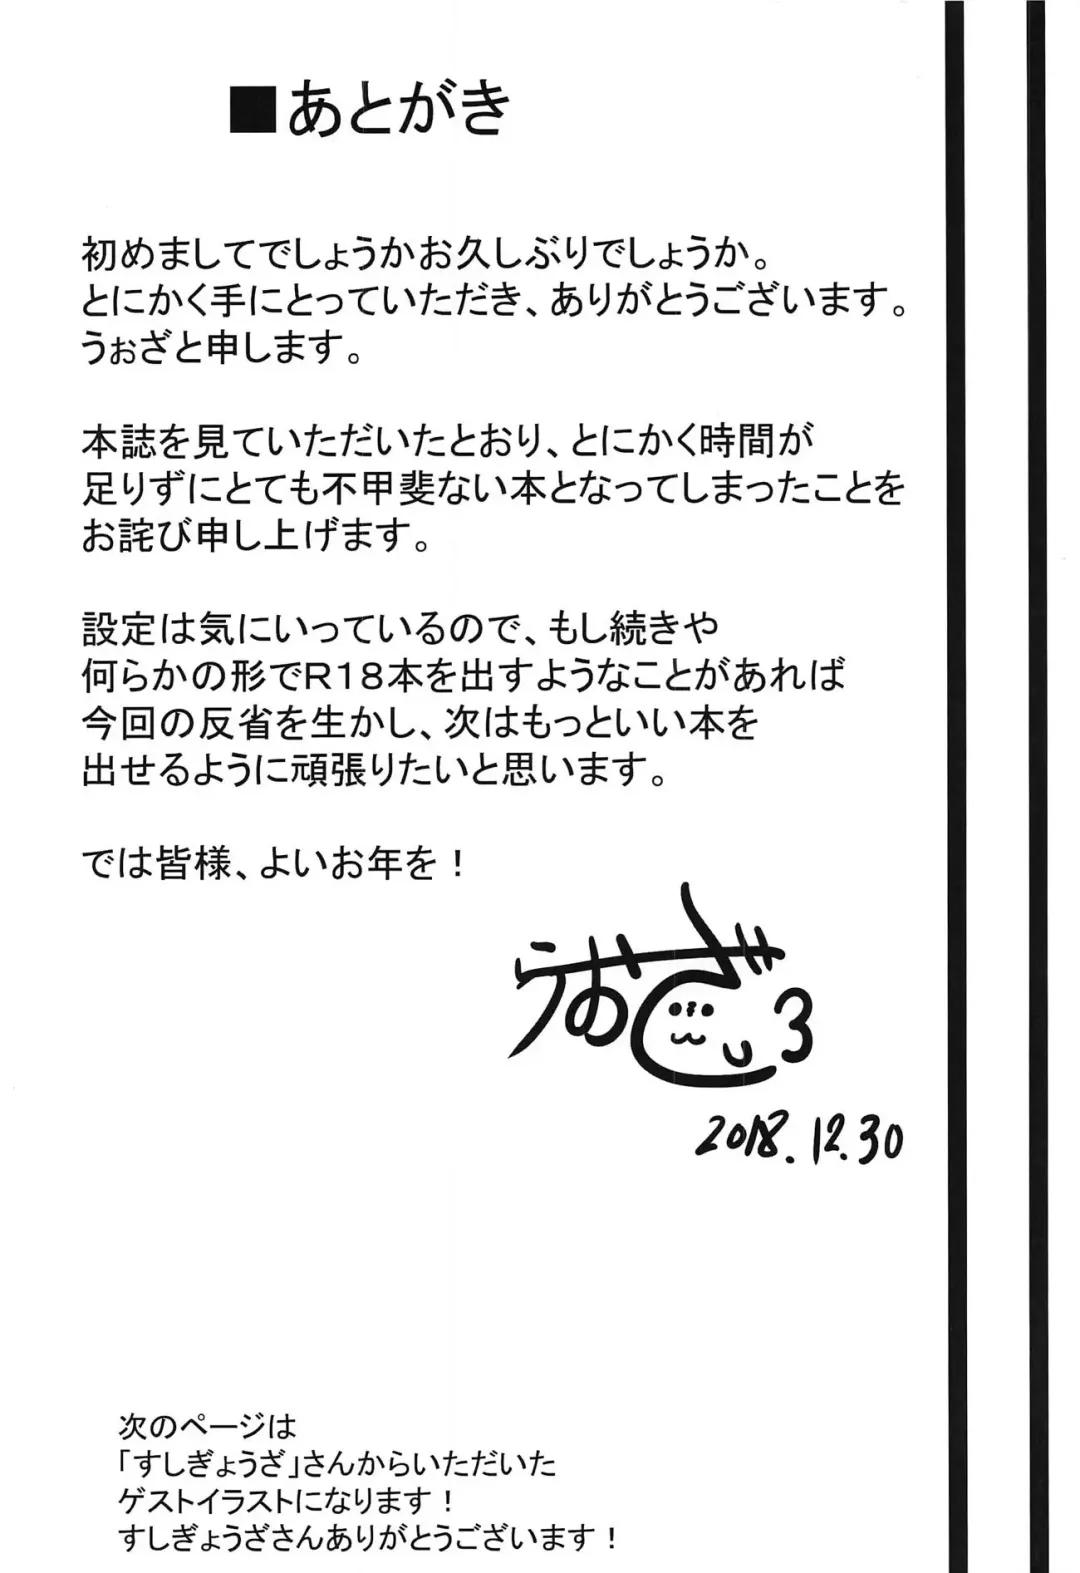 ■あとがき
初めましてでしょうかお久しぶりでしょうか。
とにかく手にとっていただき、ありがとうございます。
うぉざと申します。
本誌を見ていただいたとおり、とにかく時間が
足りずにとても不甲斐ない本となってしまったことを
お詫び申し上げます。
設定は気にいっているので、もし続きや
何らかの形でR18本を出すようなことがあれば
今回の反省を生かし、次はもっといい本を
出せるように頑張りたいと思います。
では皆様、よいお年を！
うおざ
2018.12.30
次のページは
「すしぎょうざ」さんからいただいた
ゲストイラストになります！
すしぎょうざさんありがとうございます！